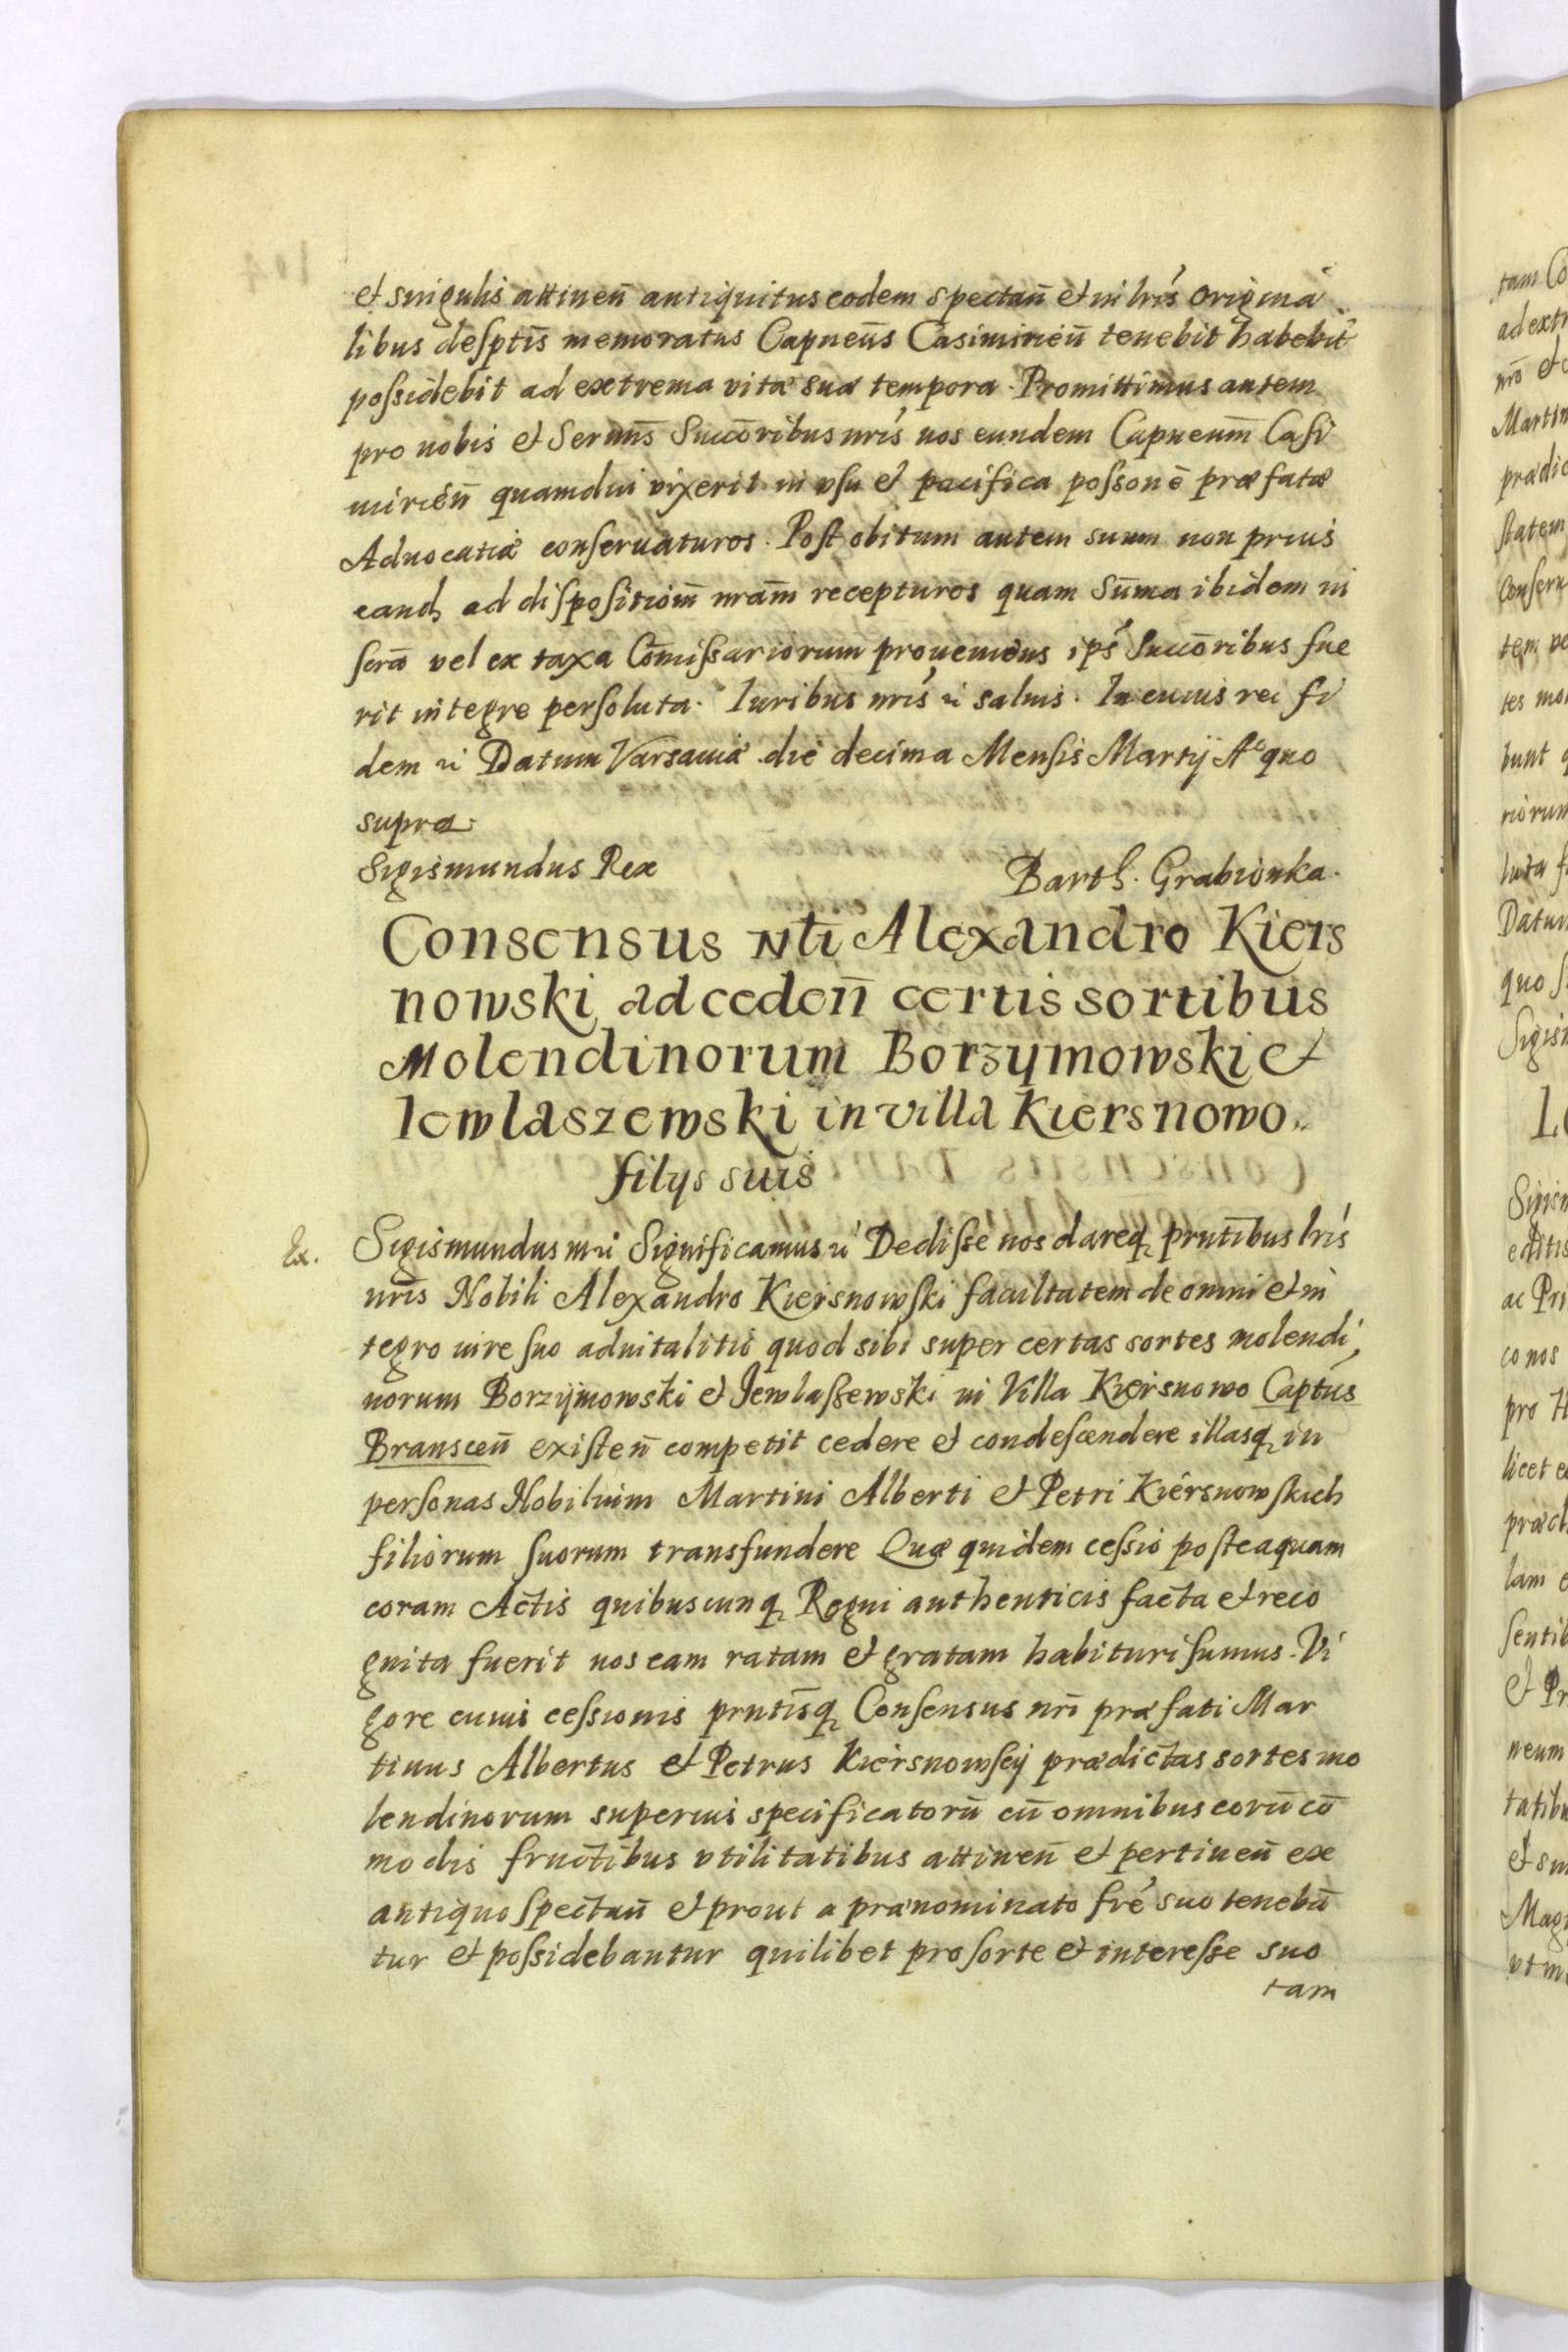 et singulis attinen̄ antiquitus eodem spectan̄ et in lrīs origina
libus desptīs memoratus Capneūs Casimirień tenebit habebit
possidebit ad extrema vitæ suæ tempora. Promittimus autem
pro nobis et Sermīs Succōribus nrīs nos eundem Capneum̄ Casi
mirień quamdiu vixerit in vsu et pacifica possonē præfatæ
Aduocatiæ conseruaturos. Post obitum autem suum non prius
eand ad dispositiom̄ nram̄ recepturos quam Sūma ibidem in
scrā vel ex taxa Cōmissariorum proueniens ips̄ Succōribus fue
rit integre persoluta. Iuribus nrīs ꝛ saluis. In cuius rei fi
dem ꝛ Datum Varsauiæ die decima Mensis Martÿ Aº quo
supra.
Sigismundus Rex Barth. Grabionka.
Consensus Nti Alexandro Kiers
nowski ad ceden̄ certis sortibus
Molendinorum Borzymowski et
Iewlaszewski in villa Kiersnowo.
filys suis
Ex. Sigismundus ꝛ Significamus ꝛ Dedisse nos dareq̨ prntībus lrīs
nrīs Nobili Alexandro Kiersnowski facultatem de omni et in
tegro iure suo aduitalitio quod sibi super certas sortes molendi
norum Borzÿmowski et Jewlaszewski in Villa Kiersnowo Captūs
Branscen̄ existen̄ competit cedere et condescendere illasq̨ in
personas Nobilium Martini Alberti et Petri Kiersnowskich
filiorum suorum transfundere Quæ quidem cessio posteaquam
coram Actis quibuscunq̨ Regni authenticis facta et reco
gnita fuerit nos eam ratam et gratam habituri sumus. Vi
gore cuius cessionis prntīsq̨ Consensus nrī præfati Mar
tinus Albertus et Petrus Kiersnowscÿ prædictas sortes mo
lendinorum superius specificatorū cū omnibus eorū cō
modis fructibus vtilitatibus attinen̄ et pertinen̄ ex
antiquo spectan̄ et prout a prænominato frē suo tenebā
tur et possidebantur quilibet pro sorte et interesse suo
tam